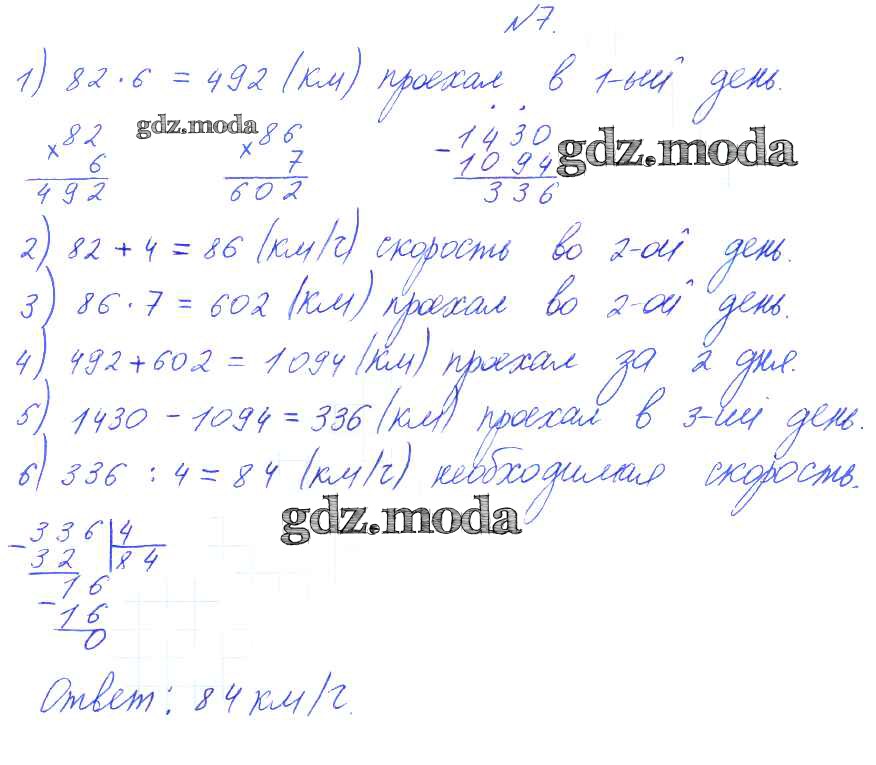 №7.
1) 82 · 6 = 492 (км) проехал в 1-ый день.
× 82 gdz.moda × 86 - 1430 gdz.moda
6 7 1094
492 602 336
2) 82 + 4 = 86 (км/ч) скорость во 2-ой день.
3) 86 · 7 = 602 (км) проехал во 2-ой день.
4) 492 + 602 = 1094 (км) проехал за 2 дня.
5) 1430 - 1094 = 336 (км) проехал в 3-ий день.
6) 336 : 4 = 84 (км/ч) необходимая скорость.
gdz.moda
- 336 | 4
32 | 84
- 16
16
0
Ответ: 84 км/ч.